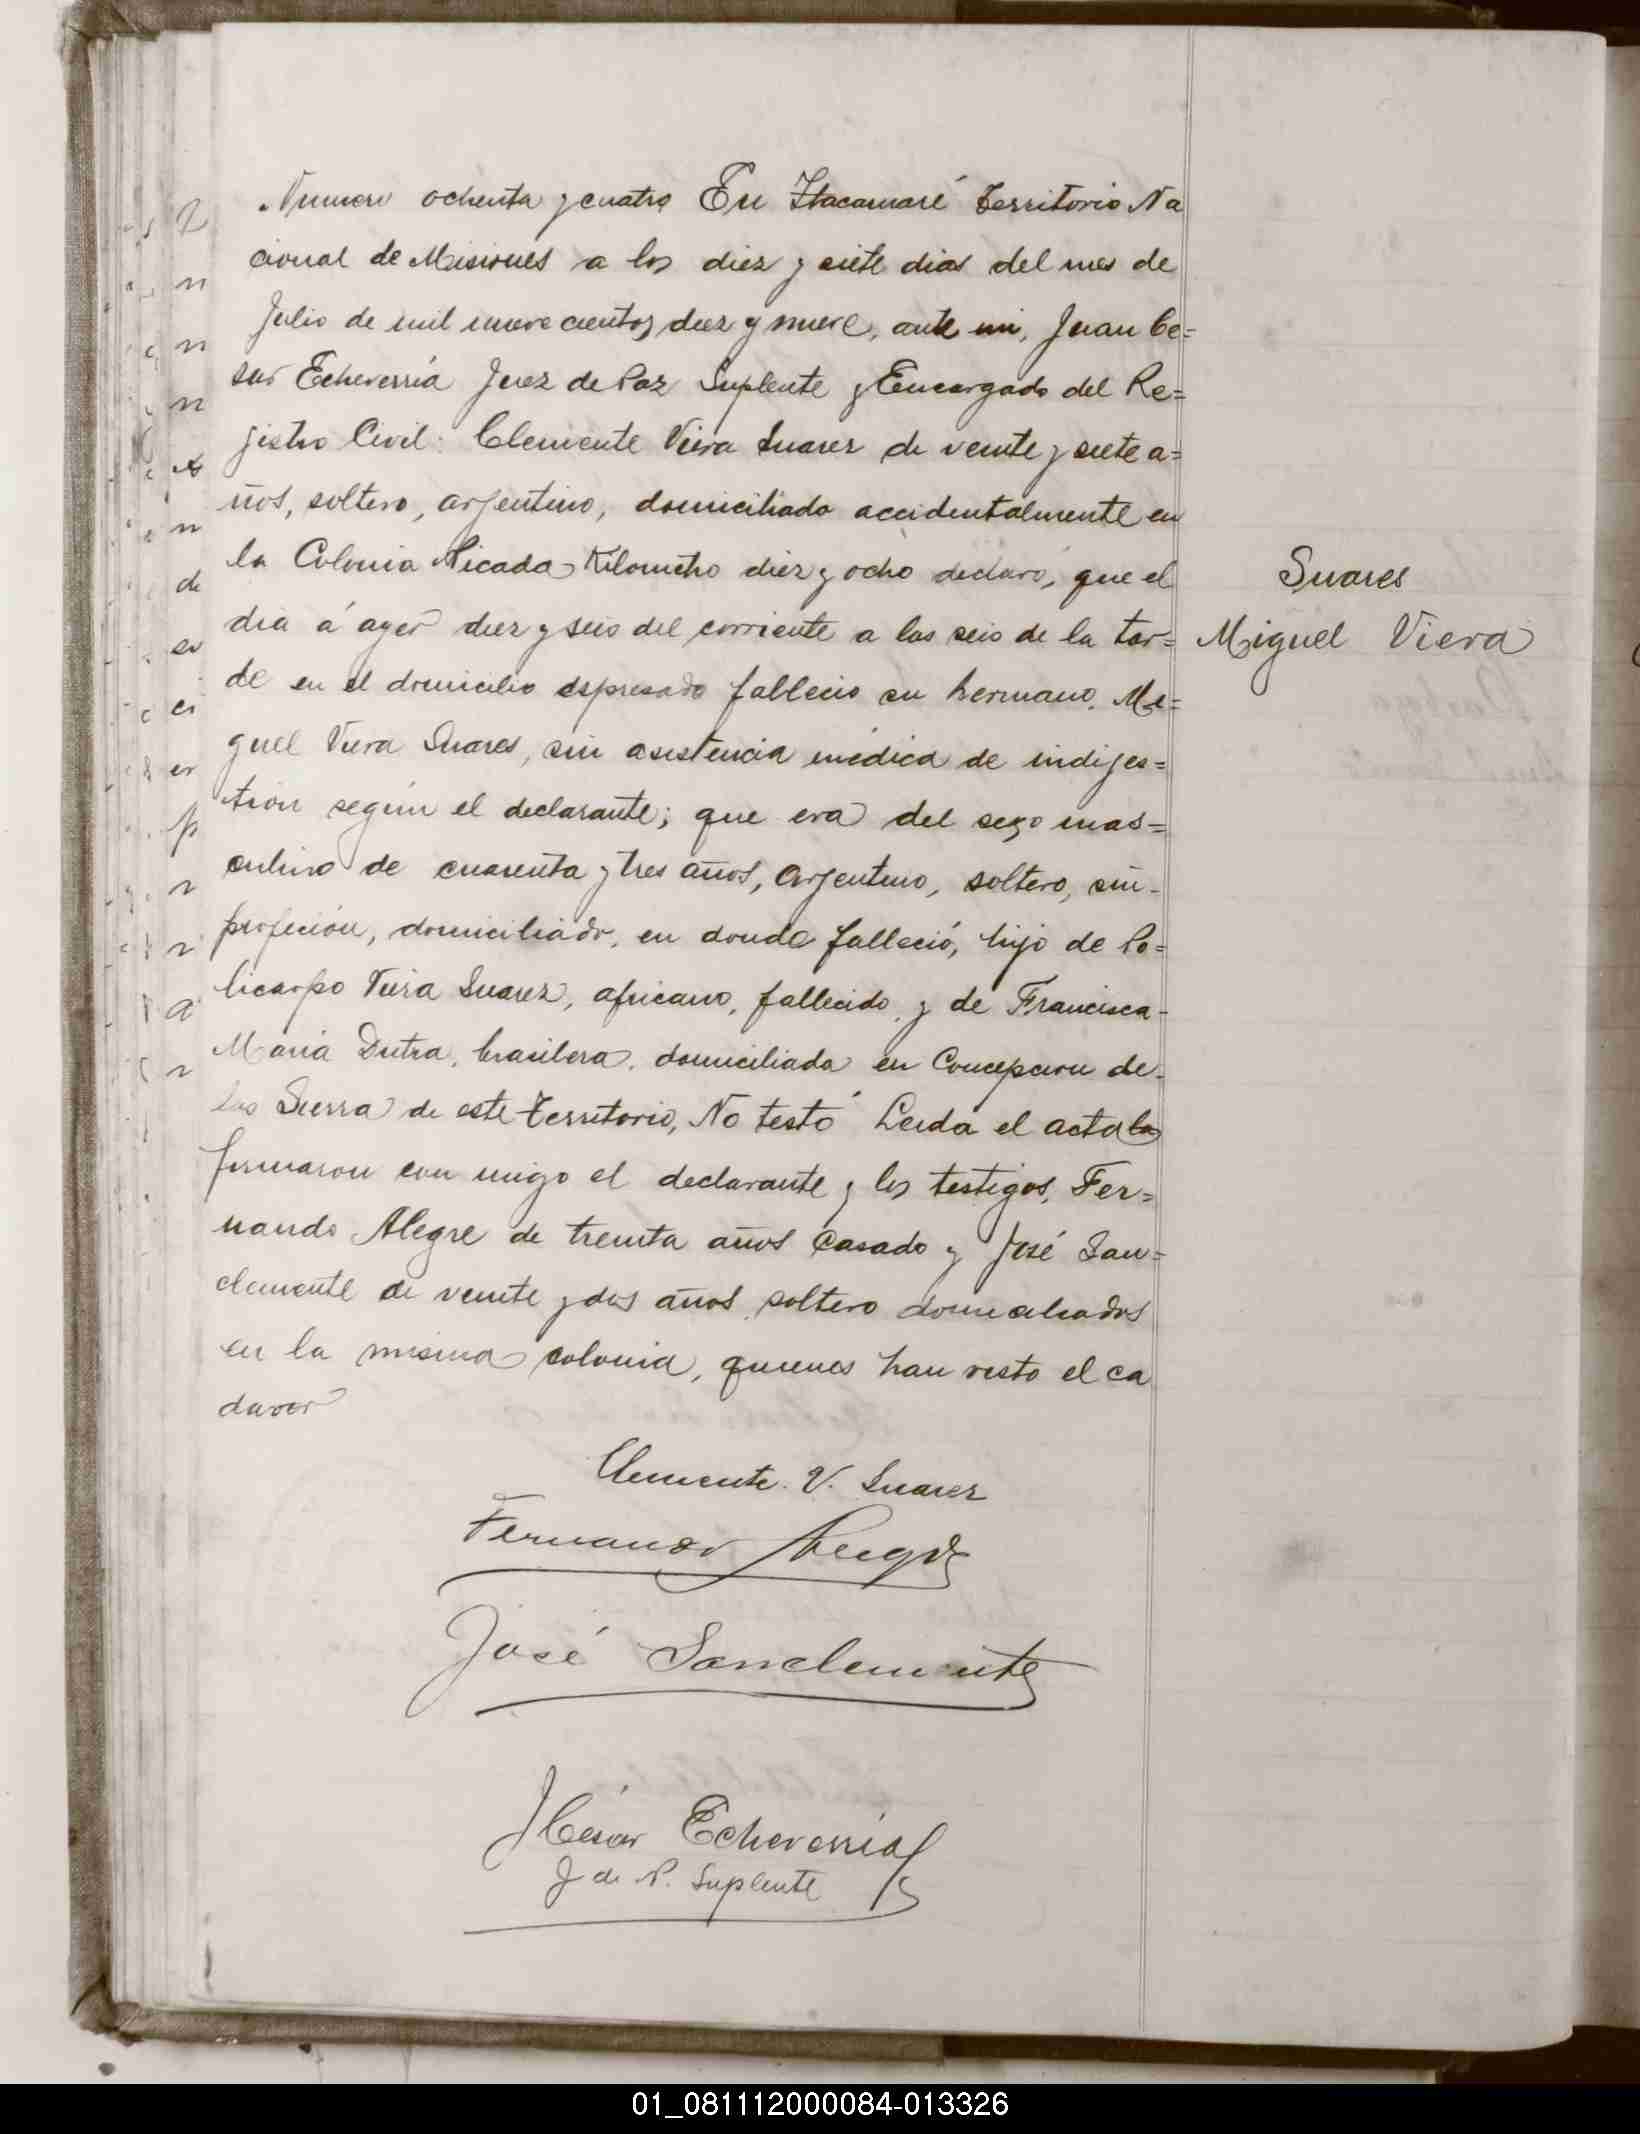 Numero ochenta y cuatro En Itacaruaré Territorio Na
cional de Misiones a los diez y siete dias del mes de
Julio de mil nueve cientos diez y nueve, ante mi, Juan Ce=
sar Echeverría Juez de Paz Suplente y Encargado del Re=
jistro Civil: Clemente Viera Suarez de veinte y siete a=
ños, soltero, arjentino, domiciliado accidentalmente en
la Colonia Picada Kilometro diez y ocho declaró, que el
Suares
dia á ayer diez y seis del corriente a las seis de la tar=
Miguel Viera
de en el domicilio espresado fallecio su hermano, Mi=
guel Viera Suares, sin asistencia médica de indijes=
tión según el declarante; que era del sexo mas=
culino de cuarenta y tres años, arjentino, soltero, sin-
profeción, domiciliado, en donde falleció, hijo de Po=
licarpo Viera Suarez, africano, fallecido, y de Francisca-
Maria Dutra, brasilera, domiciliada en Concepcion de-
las Sierra de este territorio, No testó Leida el acta la
firmaron con migo el declarante y los testigos, Fer=
nando Alegre de treinta años casado y José San=
clemente de veinte y dos años soltero domiciliados
en la misma colonia, quienes han visto el ca
daver
Clemente. V. Suarez
Fernando
José Sanclemente
J César Echeverria
J de P. Suplente
01_081112000084-013326